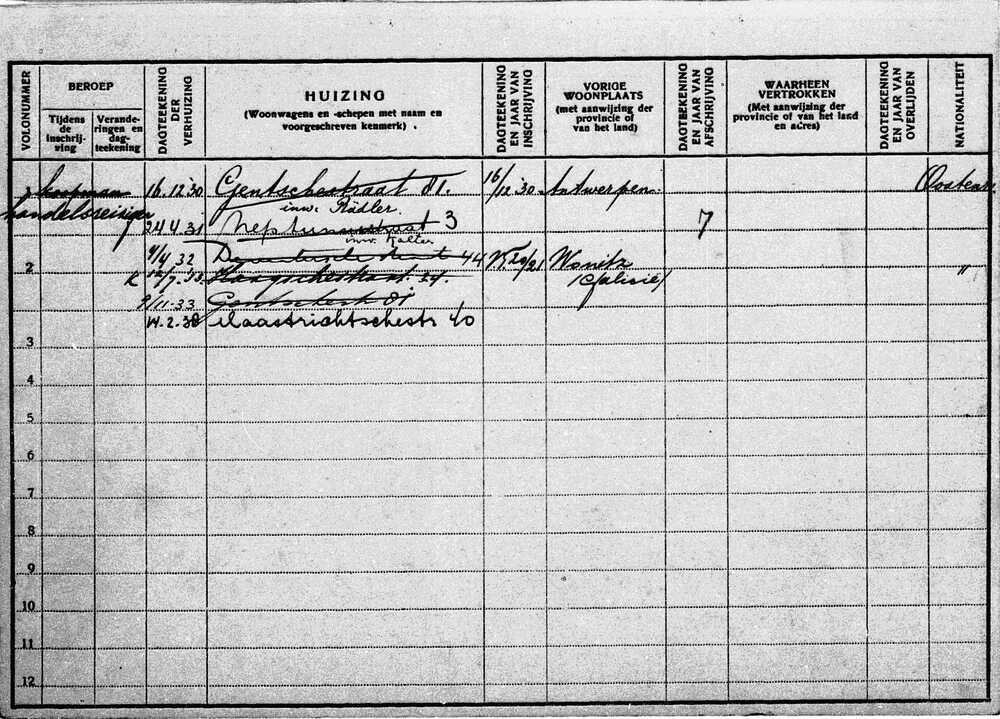 VOLGNUMMER
BEROEP
Tijdens de inschrijving
Veranderingen en dagteekening
DAGTEEKENING DER VERHUIZING
HUIZING
(Woonwagens en -schepen met naam en voorgeschreven kenmerk)
DAGTEEKENING EN JAAR VAN INSCHRIJVING
VORIGE WOONPLAATS
(met aanwijzing der provincie of van het land)
DAGTEEKENING EN JAAR VAN AFSCHRIJVING
WAARHEEN VERTROKKEN
(Met aanwijzing der provincie of van het land en adres)
DAGTEEKENING EN JAAR VAN OVERLIJDEN
NATIONALITEIT
koopman 16.12.'30 Gentschestraat 16/12 '30 Antwerpen
handelsreiziger
inw. Rädler.
24.4.31 Neptunusstraat 3 7
inw. Kalter
2 /4 32 44 "
K /7.'33 Haagschestraat 34. (Galicië)
/11-33 Gentschestr
2.38 Maastrichtschestr 40
3
4
5
6
7
8
9
10
11
12